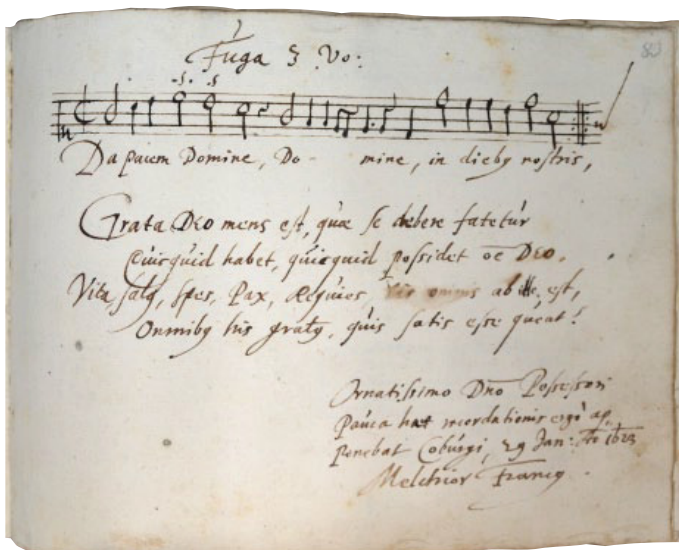 Fuga 3 Vo:
83
Da pacem Domine, Do- mine, in dieby nostris,
Grata DEO mens est, quæ se debere fatetur
Quicquid habet, quicquid possidet oe DEO.
Vita, salq, spes, Pax, Requies, Vis omnis ab illo est,
Omniby his graty, quis satis esse queat!
Ornatissimo Dno Possessori
Pauca haec recordationis ergo ap
ponebat Coburgi, 29 Jan: Ao 1623
Melchior Francq